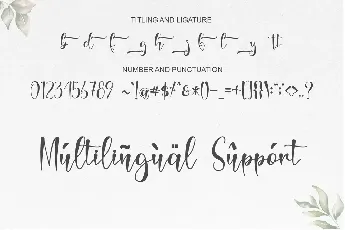 TITLING AND LIGATURE
b d t g h j k l y tt
NUMBER AND PUNCTUATION
0123456789 ~`!@#$/^&*()-_=+[]{}\:;"<>,.?
Múltilíñgùäl Sûppórt